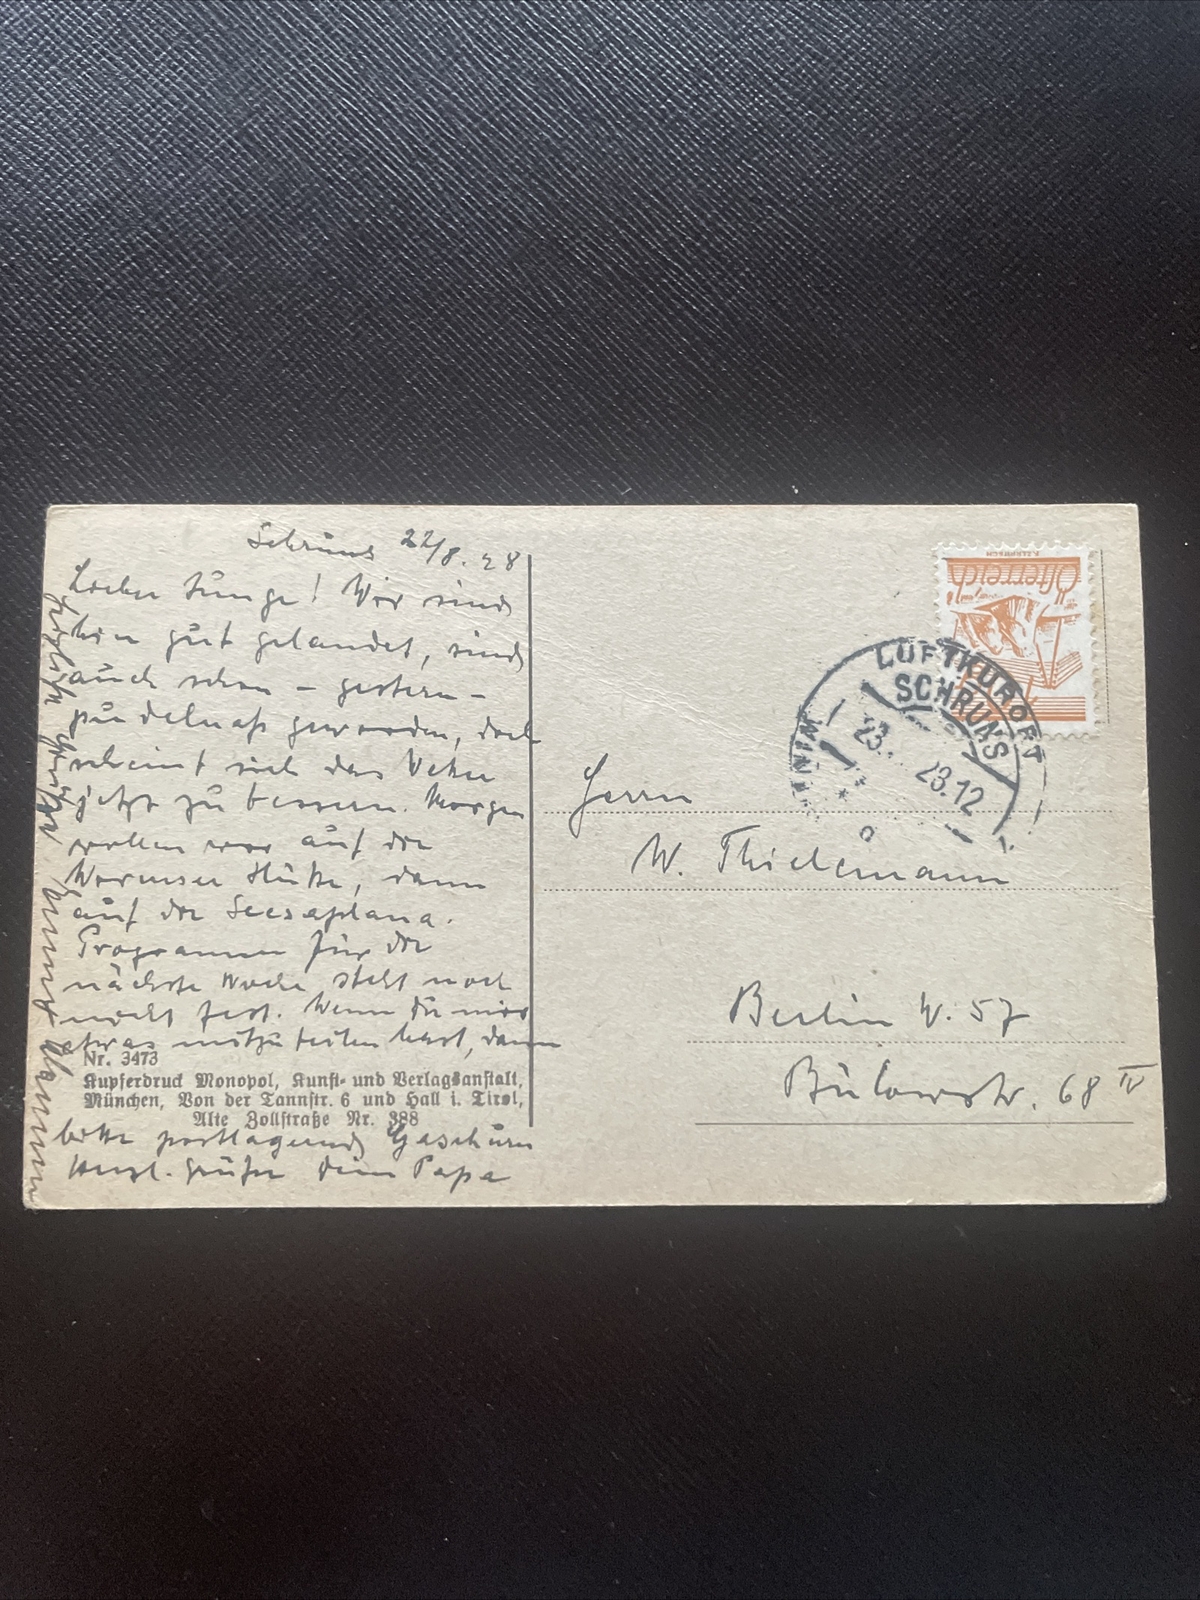 Schruns 22/8.28
Lieber Junge! Wir sind
hier gut gelandet, sind
auch schon – gestern –
pudelnaß geworden, doch
scheint sich das Wetter
jetzt zu bessern. Morgen
wollen wir auf die
Wormser Hütte, dann
auf die Scesaplana.
Programm für die
nächste Woche steht noch
nicht fest. Wenn Du mir
etwas mitzuteilen hast, dann
Nr. 3473
Kupferdruck Monopol, Kunst- und Verlagsanstalt,
München, Von der Tannstr. 6 und Hall i. Tirol,
Alte Zollstraße Nr. 388
bitte postlagernd Gaschurn
Herzl. Grüße Dein Papa
Herzlichste Grüße
Österreich
LUFTKURORT
SCHRUNS
23. 28.12
Herrn
W. Thielemann
Berlin W. 57
Bülowstr. 68 IV